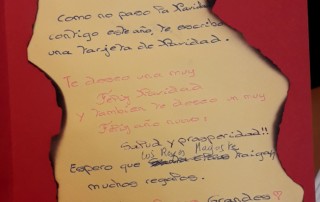 Como no paso la Navidad
contigo este año, te escribo
una tarjeta de Navidad.
Te deseo una muy
Feliz Navidad
y también te deseo un muy
Feliz año nuevo!
Salud y prosperidad!!
Los Reyes Magos te
Espero que traigan
muchos regalos.
Grandes